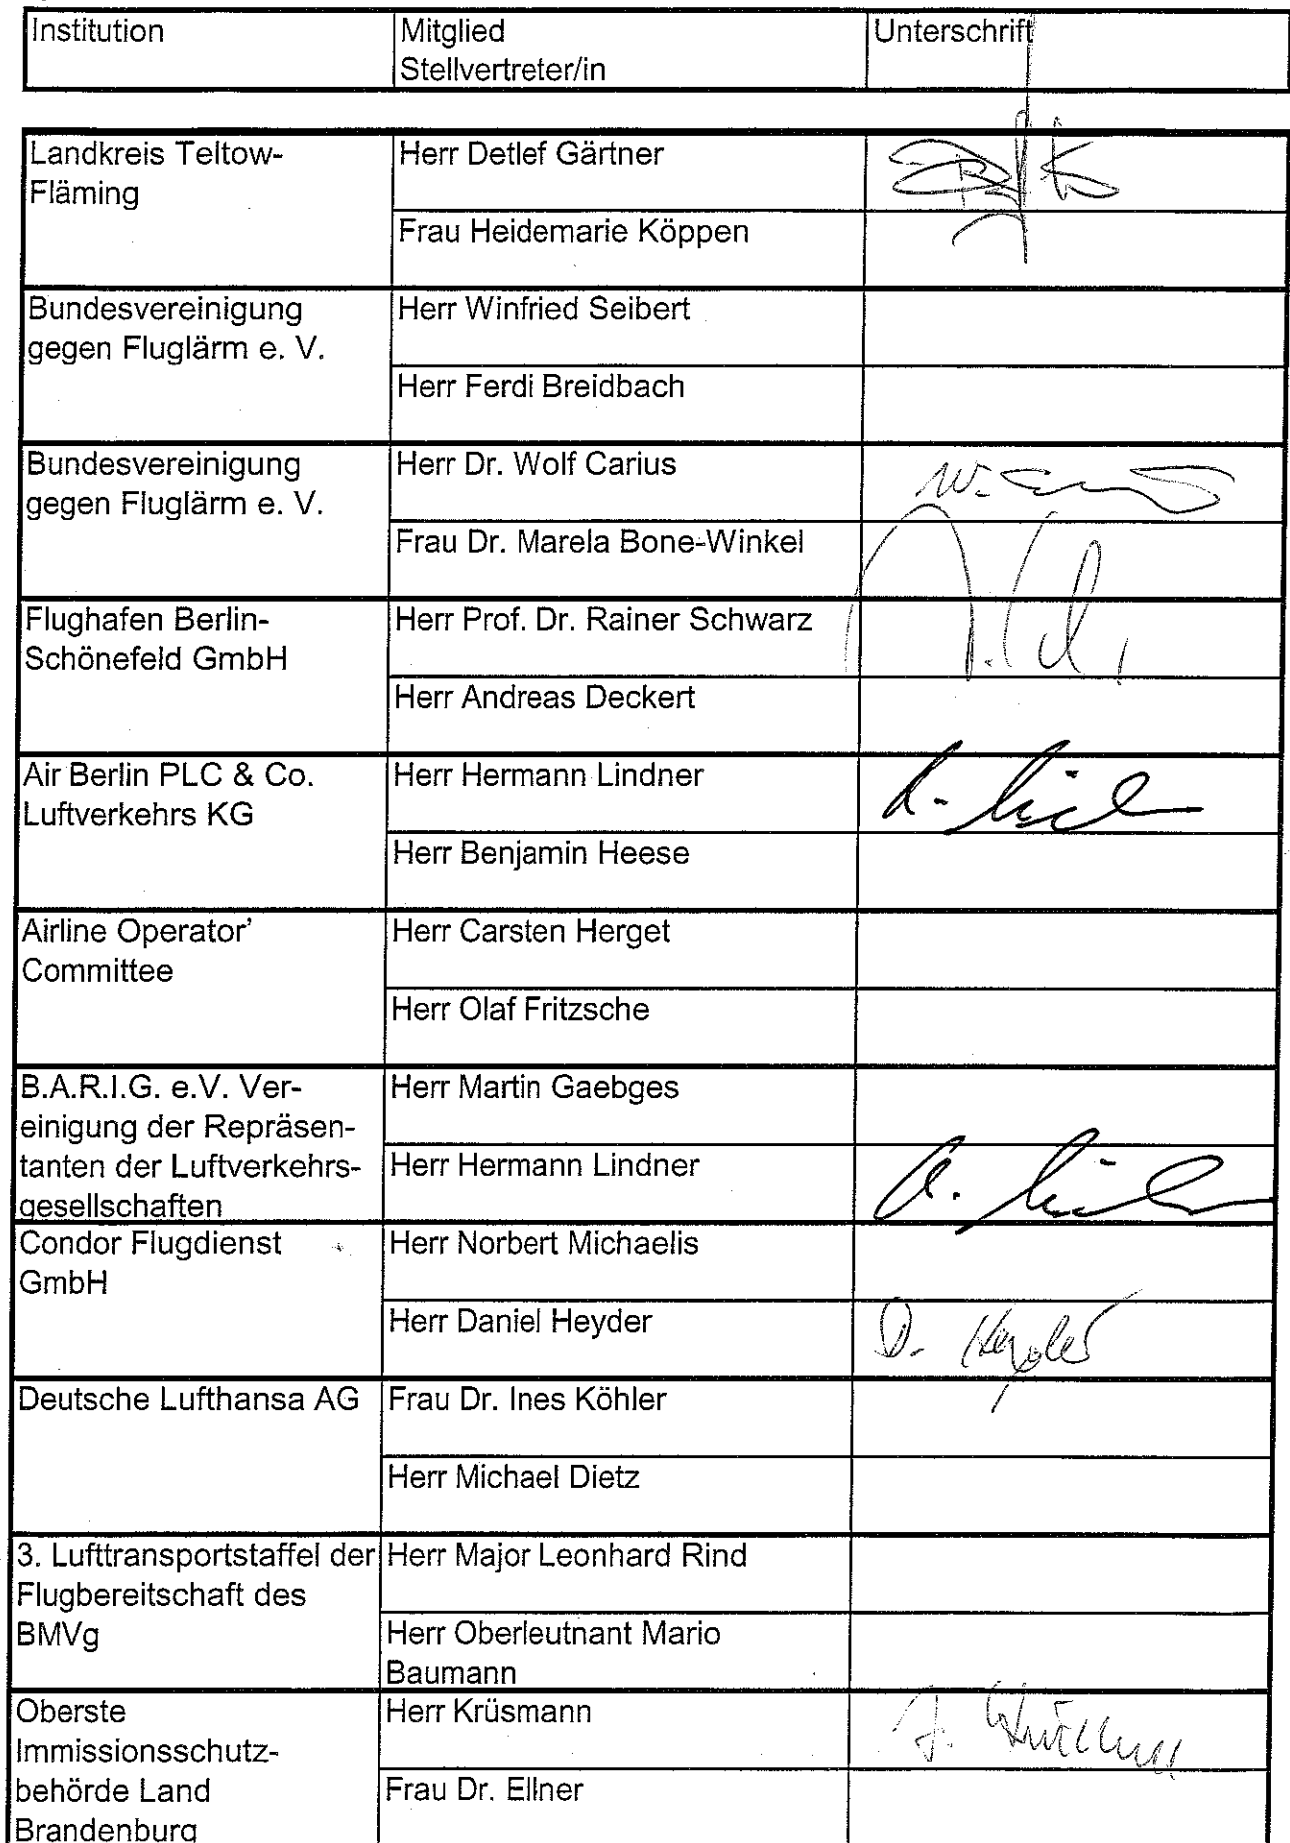 Institution
Mitglied
Stellvertreter/in
Unterschrift
Landkreis Teltow-
Fläming
Herr Detlef Gärtner
Frau Heidemarie Köppen
Bundesvereinigung
gegen Fluglärm e. V.
Herr Winfried Seibert
Herr Ferdi Breidbach
Bundesvereinigung
gegen Fluglärm e. V.
Herr Dr. Wolf Carius
W.
Frau Dr. Marela Bone-Winkel
Flughafen Berlin-
Schönefeld GmbH
Herr Prof. Dr. Rainer Schwarz
Herr Andreas Deckert
Air Berlin PLC & Co.
Luftverkehrs KG
Herr Hermann Lindner
Herr Benjamin Heese
Airline Operator’
Committee
Herr Carsten Herget
Herr Olaf Fritzsche
B.A.R.I.G. e.V. Ver-
einigung der Repräsen-
tanten der Luftverkehrs-
gesellschaften
Herr Martin Gaebges
Herr Hermann Lindner
Condor Flugdienst
GmbH
Herr Norbert Michaelis
Herr Daniel Heyder
D. Heyder
Deutsche Lufthansa AG
Frau Dr. Ines Köhler
Herr Michael Dietz
3. Lufttransportstaffel der
Flugbereitschaft des
BMVg
Herr Major Leonhard Rind
Herr Oberleutnant Mario
Baumann
Oberste
Immissionsschutz-
behörde Land
Brandenburg
Herr Krüsmann
Frau Dr. Ellner